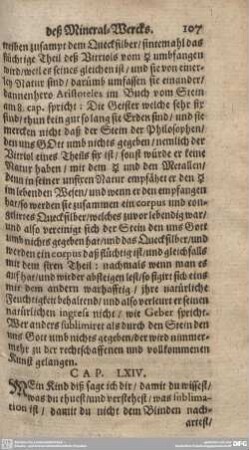 deß Mineral-Wercks. 107
treiben zusampt dem Quecksilber/ sintemahl das
flüchtige Theil deß Vitriols vom ☿ umbfangen
wird/ weil es seines gleichen ist/ und sie von einer-
ley Natur sind/ darumb umfassen sie einander/
dannenhero Aristoteles im Buch vom Stein
am 8. cap. spricht: Die Geister welche sehr fix
sind/ thun kein gut so lang sie Erden sind/ und sie
mercken nicht daß der Stein der Philosophen/
den uns GOtt umb nichts gegeben/ nemlich der
Vitriol eines Theils fix ist/ sonst würde er keine
Natur haben/ mit dem ☿ und den Metallen/
denn in seiner unfixen Natur empfähet er den ☿
im lebenden Wesen/ und wenn er den empfangen
hat/ so werden sie zusammen ein corpus und con-
gelirtes Quecksilber/ welches zuvor lebendig war/
und also vereinigt sich der Stein den uns Gott
umb nichts gegeben hat/ und das Quecksilber/ und
werden ein corpus daß flüchtig ist/ und gleichfalls
mit dem fixen Theil: nachmals wenn man es
auf hat/ und wieder absteigen lest/ so figirt sich eins
mit dem andern warhafftig/ ihre natürliche
Feuchtigkeit behaltend/ und also verleurt er seinen
natürlichen ingreß nicht/ wie Geber spricht.
Wer anders sublimiret als durch den Stein den
uns Gott umb nichts gegeben/ der wird nimmer-
mehr zu der rechtschaffenen und vollkommenen
Kunst gelangen.
CAP. LXIV.
MEin Kind diß sage ich dir/ damit du wissest/
was du thuest und verstehest/ was sublima-
tion ist/ damit du nicht dem Blinden nach-
artest/